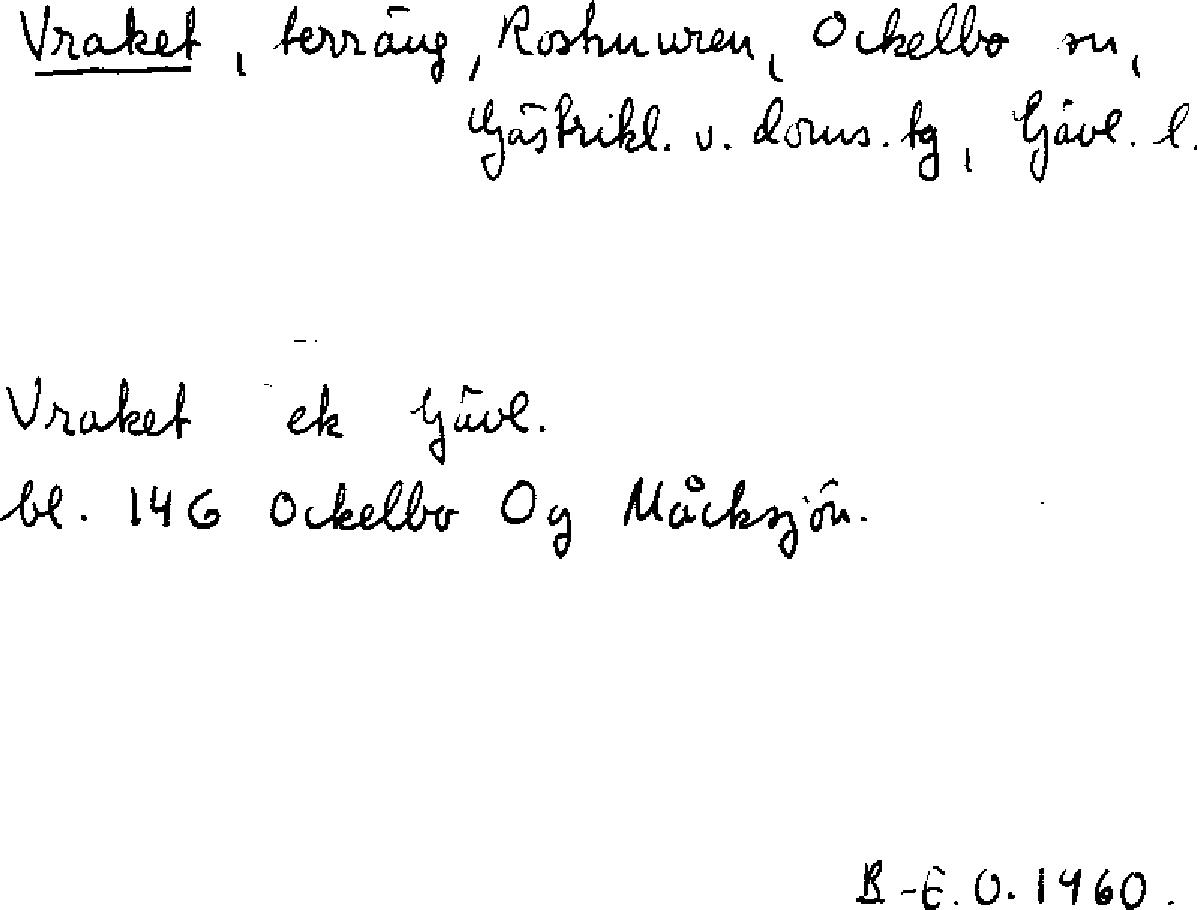 Vraket, terräng, Roshmuren, Ockelbo sn,
Gästrikl. v. doms. tg, Gävl. l.
Vraket ek Gävl.
bl. 146 Ockelbo Og Måcksjön.
B-E. O. 1960.